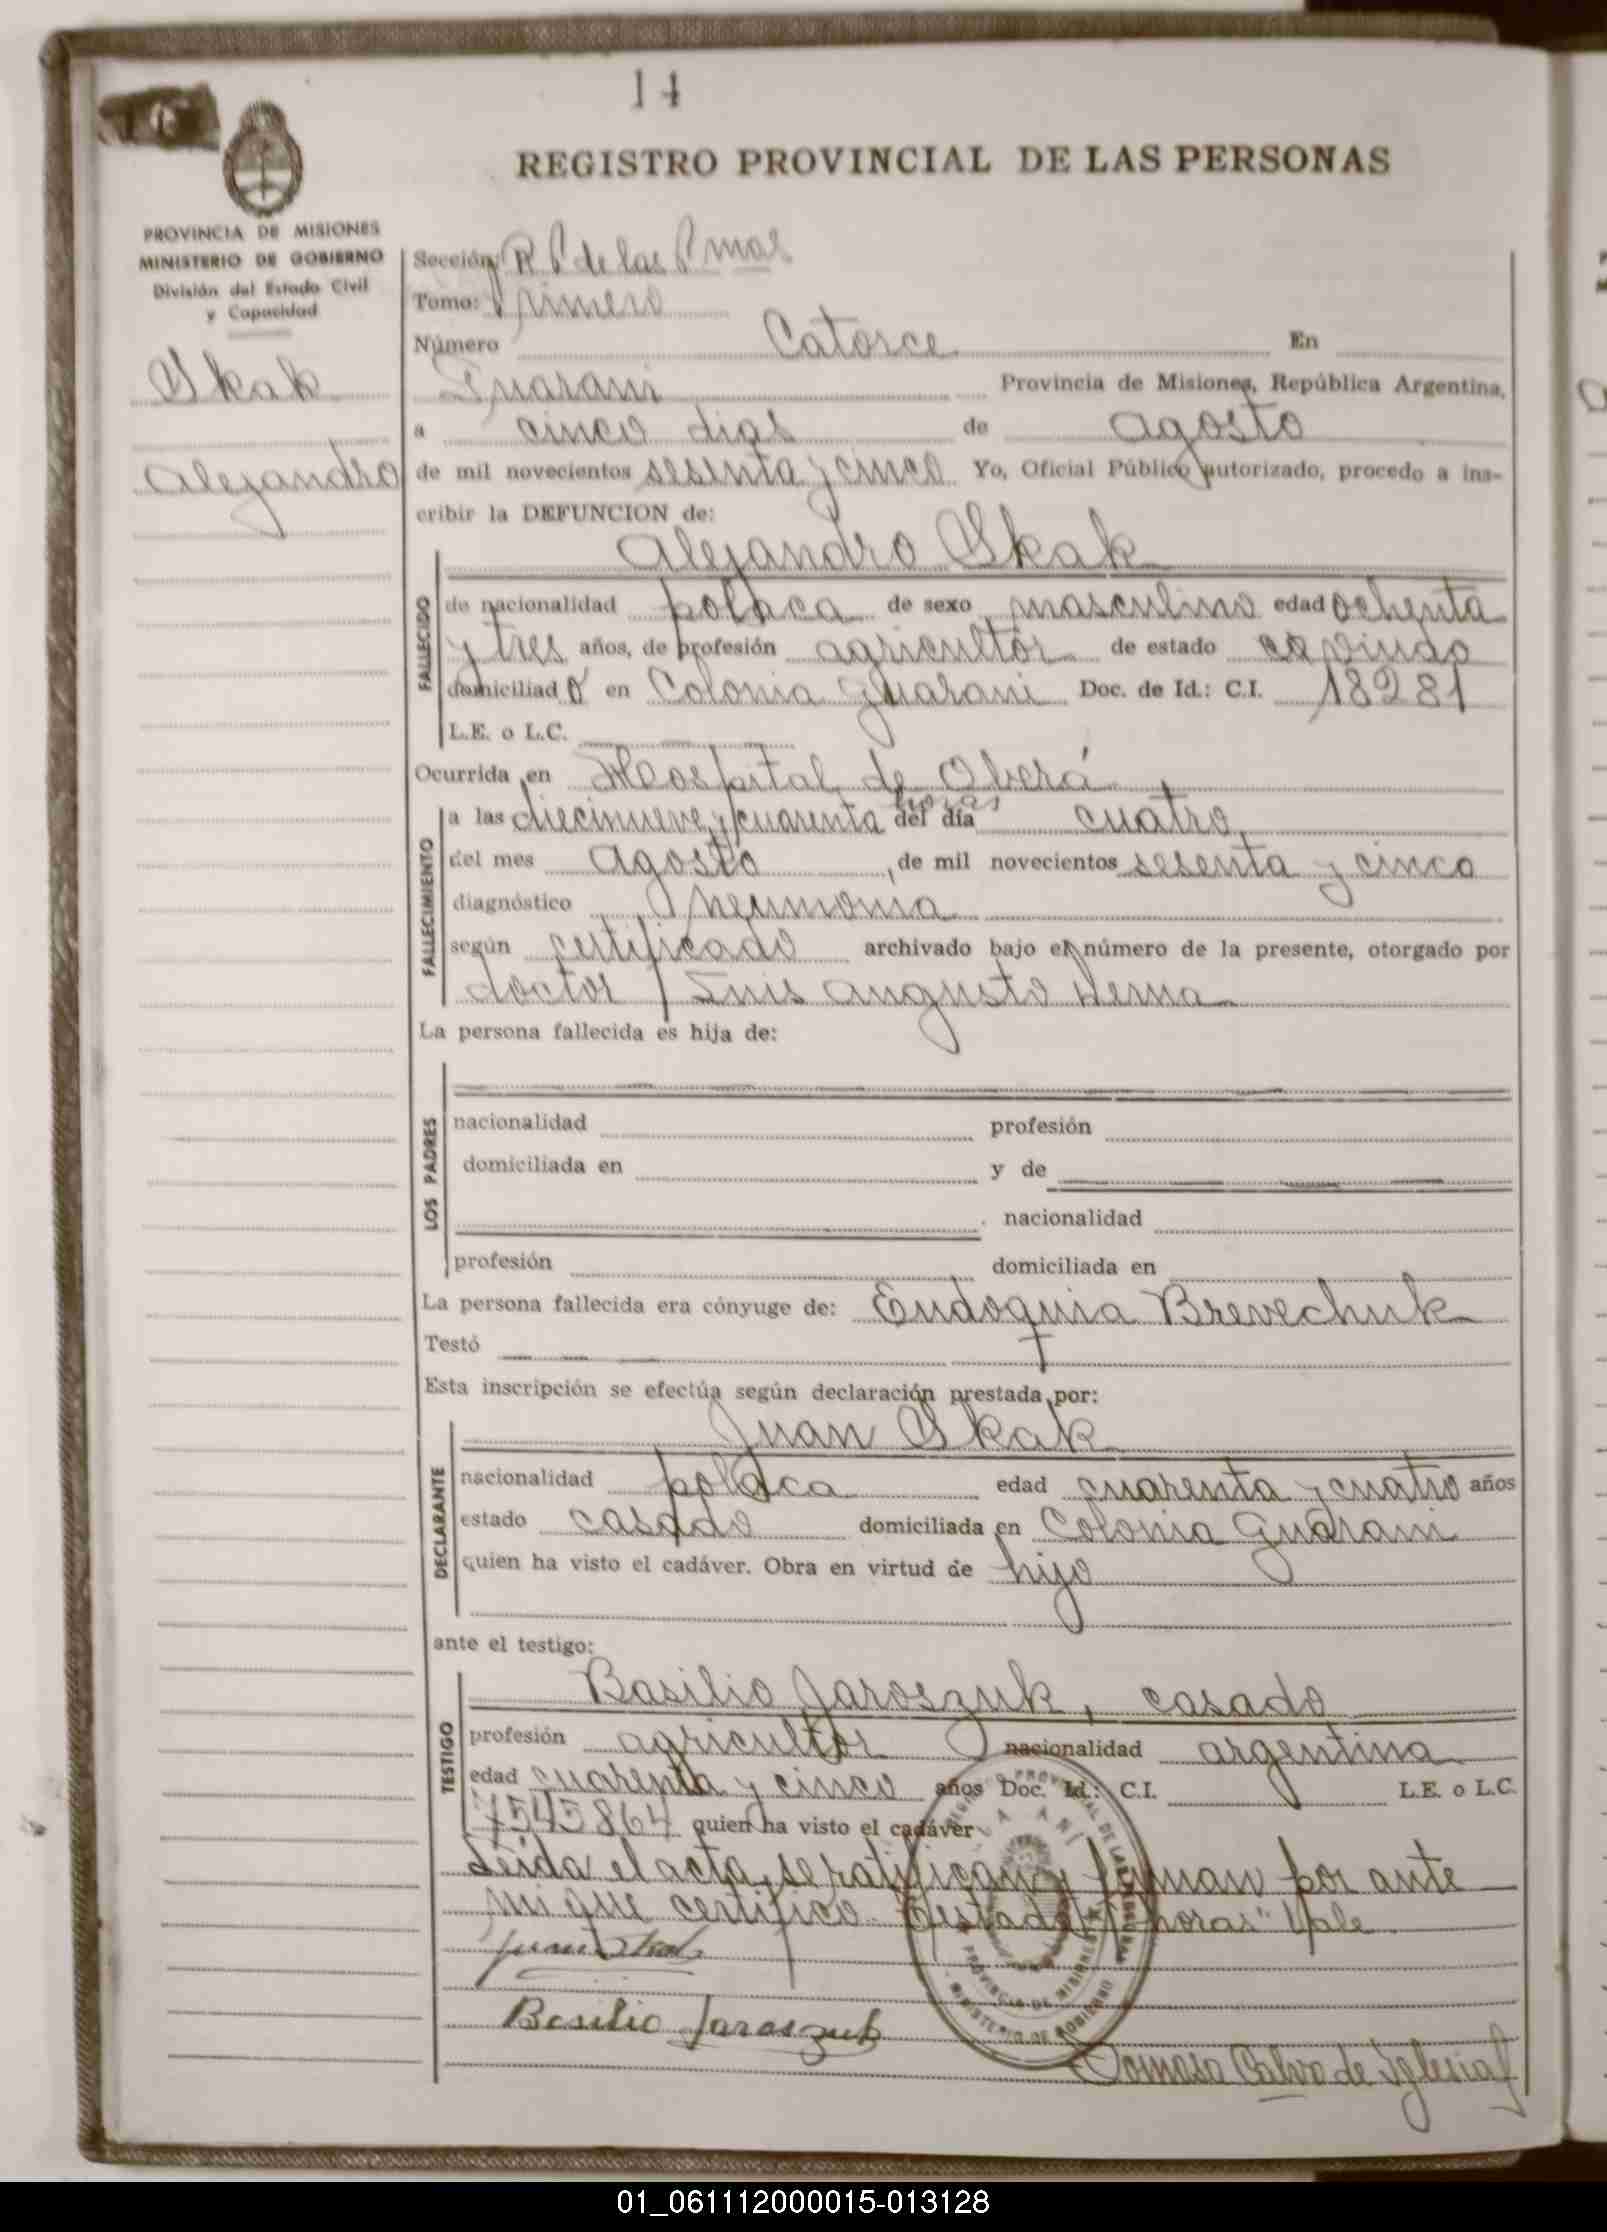 14
REGISTRO PROVINCIAL DE LAS PERSONAS
PROVINCIA DE MISIONES
MINISTERIO DE GOBIERNO
División del Estado Civil
y Capacidad
Skak
Alejandro
Sección: R P de las Pmas
Tomo: Primero
Número Catorce En
Guarani Provincia de Misiones, República Argentina,
a cinco dias de agosto
de mil novecientos sesenta y cinco Yo, Oficial Público autorizado, procedo a ins-
cribir la DEFUNCION de:
Alejandro Skak
FALLECIDO
de nacionalidad polaca de sexo masculino edad ochenta
y tres años, de profesión agricultor de estado viudo
domiciliado en Colonia Guarani Doc. de Id.: C.I. 18281
L.E. o L.C.
Ocurrida en Hospital de Oberá
FALLECIMIENTO
horas
a las diecinueve y cuarenta del día cuatro
del mes agosto, de mil novecientos sesenta y cinco
diagnóstico Neumonia
según certificado archivado bajo el número de la presente, otorgado por
doctor Luis Augusto
La persona fallecida es hija de:
LOS PADRES
nacionalidad profesión
domiciliada en y de
nacionalidad
profesión domiciliada en
La persona fallecida era cónyuge de: Eudoquia Brevechuk
Testó
Esta inscripción se efectúa según declaración prestada por:
Juan Skak
DECLARANTE
nacionalidad polaca edad cuarenta y cuatro años
estado casado domiciliada en Colonia Guarani
quien ha visto el cadáver. Obra en virtud de hijo
ante el testigo:
Basilio Jaroszuk, casado
TESTIGO
profesión agricultor nacionalidad argentina
edad cuarenta y cinco años Doc. Id.: C.I. L.E. o L.C.
7545864 quien ha visto el cadáver
Leida el acta, se ratifican y firman por ante
mi que certifico. Testado "horas" Vale
Juan Skak
Basilio Jaroszuk
Tomasa Calvo de Iglesias
REGISTRO PROVINCIAL DE LAS PERSONAS
GUARANÍ
PROVINCIA DE MISIONES
MINISTERIO DE GOBIERNO
01_061112000015-013128